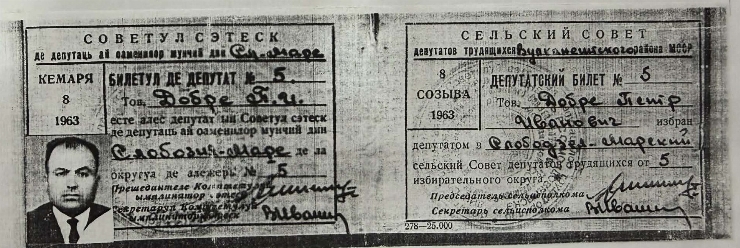 СОВЕТУЛ СЭТЕСК
де депутаць ай оаменилор мунчий дин Сл-Маре
КЕМАРЯ
8
1963
БИЛЕТУЛ ДЕ ДЕПУТАТ № 5.
Тов. Добре П.И.
есте алес депутат ын Советул сэтеск
де депутаць ай оаменилор мунчий дин
Слобозия-Маре де ла
округуа де алежерь № 5
Прешединтеле Комитетулуй
Секретарул Комитетулуй
СЕЛЬСКИЙ СОВЕТ
депутатов трудящихся Вулканештского района МССР
8
СОЗЫВА
1963
ДЕПУТАТСКИЙ БИЛЕТ № 5
Тов. Добре Петр
Иванович избран
депутатом в Слободзея-Марский
сельский Совет депутатов трудящихся от 5
избирательного округа.
Председатель сельисполкома
Секретарь сельисполкома
278—25.000